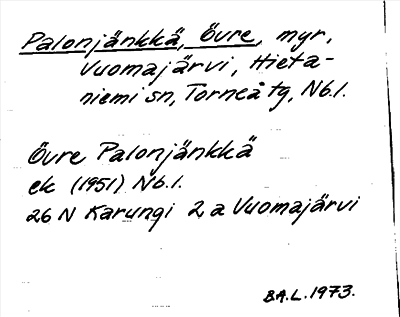 Palonjänkkä, Övre, myr,
Vuomajärvi, Hieta-
niemi sn, Torneå tg, Nb.l.
Övre Palonjänkkä
ek (1951) Nb.l.
26 N Karungi 2 a Vuomajärvi
B.A.L. 1973.